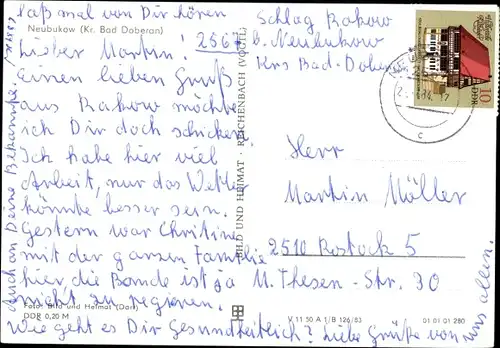 laß mal von Dir hören
Neubukow (Kr. Bad Doberan)
Lieber Martin.
Einen lieben Gruß
aus Rakow möchte
ich Dir doch schicken.
Ich habe hier viel
Arbeit, nur das Wetter
könnte besser sein.
Gestern war Christine
mit der ganzen Familie
hier, die Bande ist ja
nicht zu regieren.
Foto: Bild und Heimat (Dart)
DDR 0,20 M
Wie geht es Dir Gesundheitlich? Liebe Grüße von uns allen.
auch an Deine Bekannte
BILD UND HEIMAT · REICHENBACH (VOGTL)
V 11 50 A 1/B 126/83
01 01 01 280
2567
Schlag Rakow
b. Neubukow
Krs Bad-Doberan
10
DDR
Herr
Martin Möller
2510 Rostock 5
M. Thesen-Str. 30